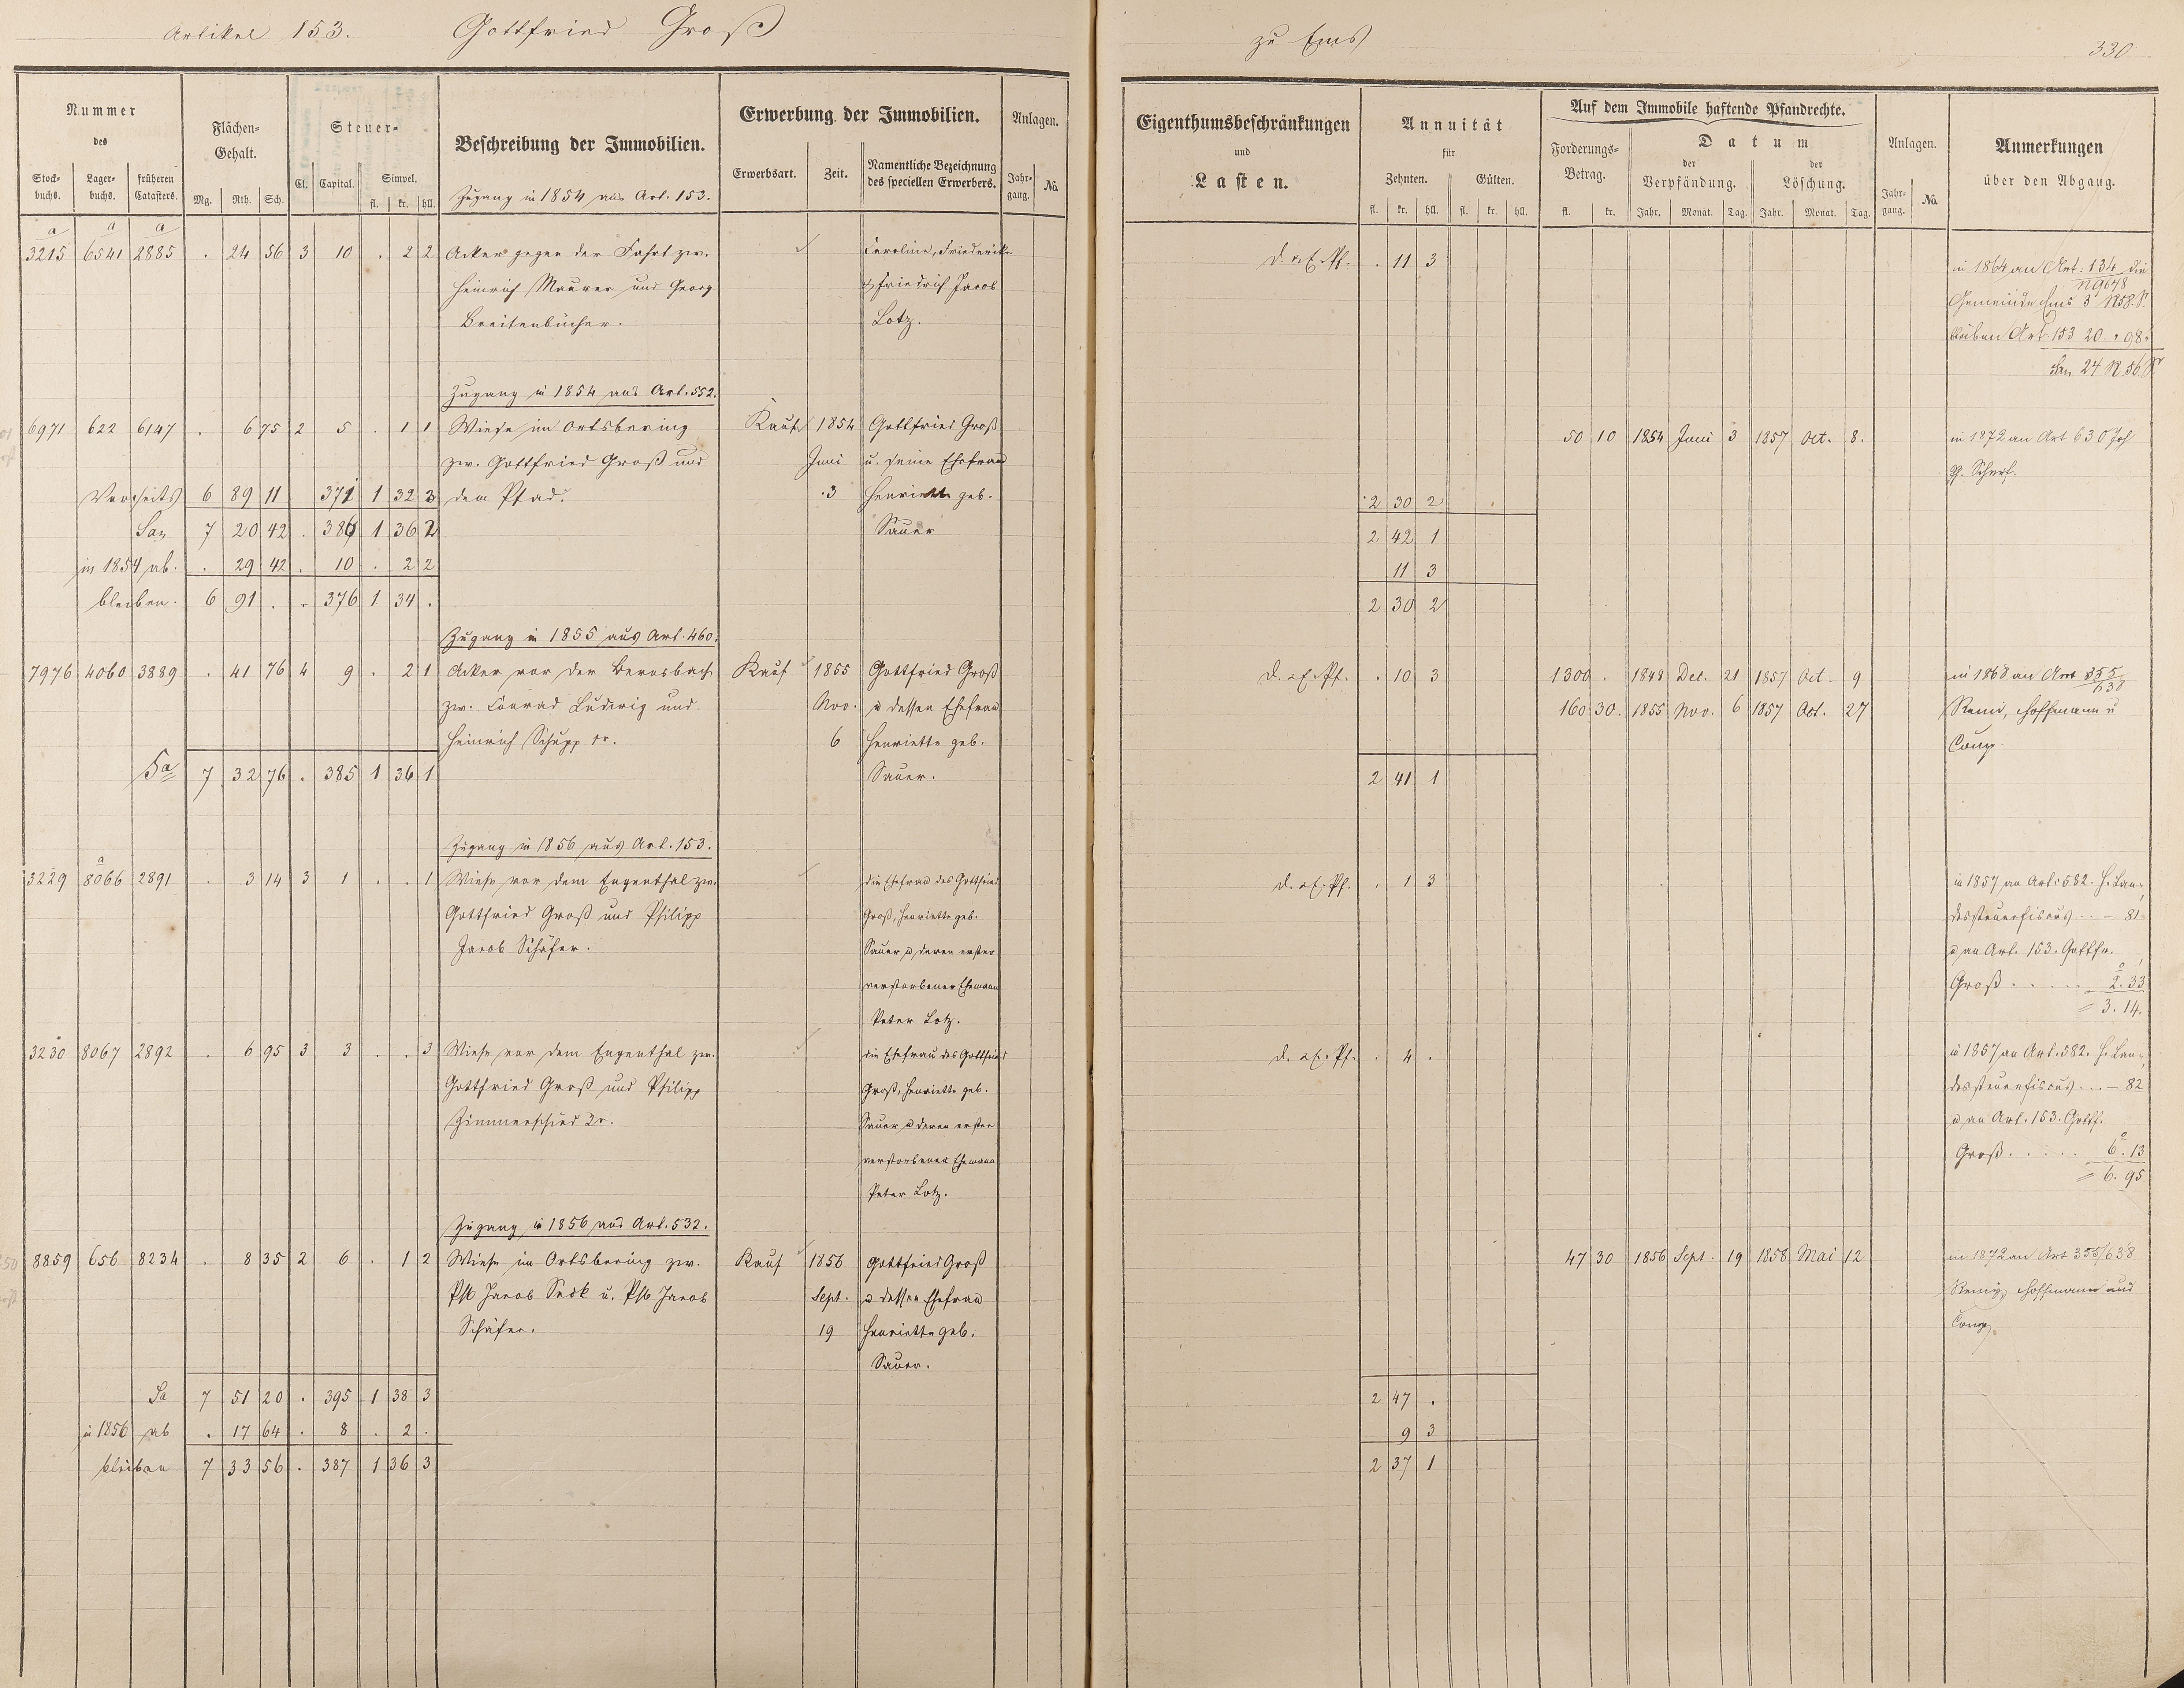 Artikel 153. Gottfried Groß zu Ems 330
Nummer des
Stock-buchs. Lager-buchs. früheren Catasters.
Flächen-Gehalt.
Mg. Rth. Sch.
Steuer-
Cl. Capital. Simpel.
fl. kr. hll.
Beschreibung der Immobilien.
Erwerbung der Immobilien.
Erwerbsart. Zeit. Namentliche Bezeichnung des speciellen Erwerbers.
Anlagen.
Jahr-gang. No.
Eigenthumsbeschränkungen und Lasten.
Annuität für
Zehnten. Gülten.
fl. kr. hll. fl. kr. hll.
Auf dem Immobile haftende Pfandrechte.
Forderungs-Betrag.
fl. kr.
Datum
der Verpfändung. der Löschung.
Jahr. Monat. Tag. Jahr. Monat. Tag.
Anlagen.
Jahr-gang. No.
Anmerkungen über den Abgang.
Zugang in 1854 aus Art. 153.
a a a
3215 6541 2885 . 24 56 3 10 . 2 2 Acker gegen der Fahrt zw. Caroline, Friedericke d. a. E. Pf. . 11 3 in 1864 an Art. 134 die
Heinrich Maurer und Georg & Friedrich Jacob Gemeinde Ems 3 R 58. S.
Breitenbücher. Lotz. bleiben Art 153 20 . 98.
24 R 56 S
Zugang in 1854 aus Art. 552.
6971 622 6147 . 6 75 2 5 . 1 1 Wiese im Ortsbering Kauf 1854 Gottfried Groß 50 10 1854 Juni 3 1857 Oct. 8. in 1872 an Art 630 Joh
zw. Gottfried Groß und Juni u. seine Ehefrau
Vorseits 6 89 11 371 1 32 3 dem Pfad. 3 Henriette geb. 2 30 2
Sa. 7 20 42 . 386 1 36 2 Sauer 2 42 1
in 1854 ab. . 29 42 . 10 . 2 2 11 3
bleiben. 6 91 . . 376 1 34 . 2 30 2
Zugang in 1855 aus Art. 460.
7976 4060 3889 . 41 76 4 9 . 2 1 Acker vor der Bernsbach Kauf 1855 Gottfried Groß d. a. E. Pf. . 10 3 1300 . 1849 Dec. 21 1857 Oct. 9 in 1868 an Art 355/638
zw. Conrad Ludwig und Nov. u dessen Ehefrau 160 30. 1855 Nov. 6 1857 Oct. 27 Remi, Hoffmann u
Heinrich Schupp 1r. 6 Henriette geb. Comp.
Sa 7 32 76 . 385 1 36 1 Sauer. 2 41 1
Zugang in 1856 aus Art. 153.
a
3229 8066 2891 . 3 14 3 1 . . 1 Wiese vor dem Engenthal zw. die Ehefrau des Gottfried d. a. E. Pf. . 1 3 in 1857 an Art. 582. H. Lan-
Gottfried Groß und Philipp Groß, Henriette geb. dessteuerfiscus .. – 81
Jacob Schäfer. Sauer u deren erster u an Art. 153. Gottfr.
verstorbener Ehemann Groß ..... 2. 33
Peter Lotz. = 3. 14.
3230 8067 2892 . 6 95 3 3 . . 3 Wiese vor dem Engenthal zw. die Ehefrau des Gottfried d. a. E. Pf. . 4 . in 1857 an Art. 582. H. Lan-
Gottfried Groß und Philipp Groß, Henriette geb. dessteuerfiscus ... – 82
Zimmerschied 2r. Sauer u deren erster u an Art. 153. Gottf.
verstorbener Ehemann Groß ..... 6. 13
Peter Lotz. = 6. 95
Zugang in 1856 aus Art. 532.
8859 656 8234 . 8 35 2 6 . 1 2 Wiese im Ortsbering zw. Kauf 1856 Gottfried Groß 47 30 1856 Sept. 19 1858 Mai 12 in 1872 an Art 355/638
Phl Jacob u. Phl Jacob Sept. u dessen Ehefrau Remy, Hoffmann und
Schäfer. 19 Henriette geb. Comp.
Sauer.
Sa 7 51 20 . 395 1 38 3 2 47 .
in 1856 ab . 17 64 . 8 . 2 . 9 3
bleiben 7 33 56 . 387 1 36 3 2 37 1